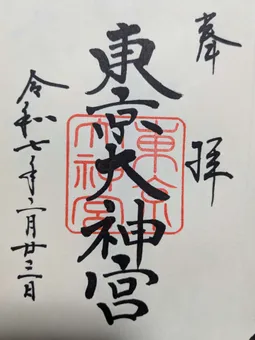 奉拝
東京大神宮
令和七年二月廿三日
東京
大神宮